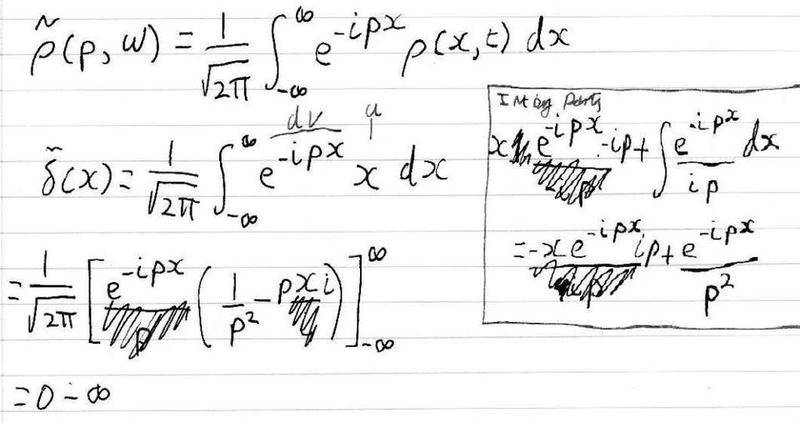 ρ̃(p, ω) = 1/√2π ∫_{-∞}^{∞} e^{-ipx} ρ(x,t) dx
dv u
δ̃(x) = 1/√2π ∫_{-∞}^{∞} e^{-ipx} x dx
= 1/√2π [ e^{-ipx} ( 1/p² - pxi ) ]_{-∞}^{∞}
= 0 - ∞
Int by Parts
x e^{-ipx} · -ip + ∫ e^{-ipx}/ip dx
= -x e^{-ipx} ip + e^{-ipx}/p²